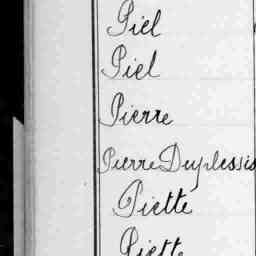 Piel
Piel
Pierre
Pierre Duplessis
Piette
Piette